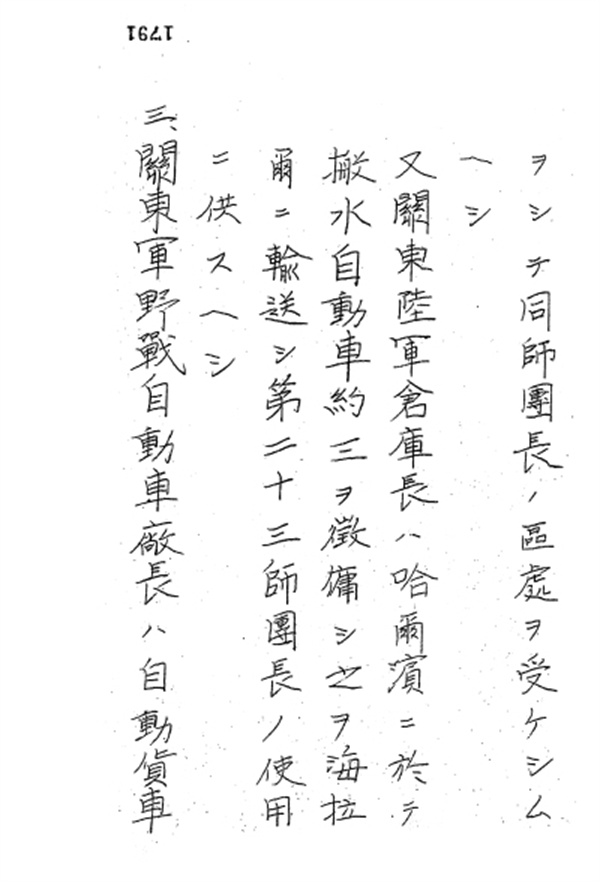 ヲシテ同師團長ノ區處ヲ受ケシム
ヘシ
又關東陸軍倉庫長ハ哈爾濱ニ於テ
撒水自動車約三ヲ徵傭シ之ヲ海拉
爾ニ輸送シ第二十三師團長ノ使用
ニ供スヘシ
三、關東軍野戰自動車廠長ハ自動貨車
1791